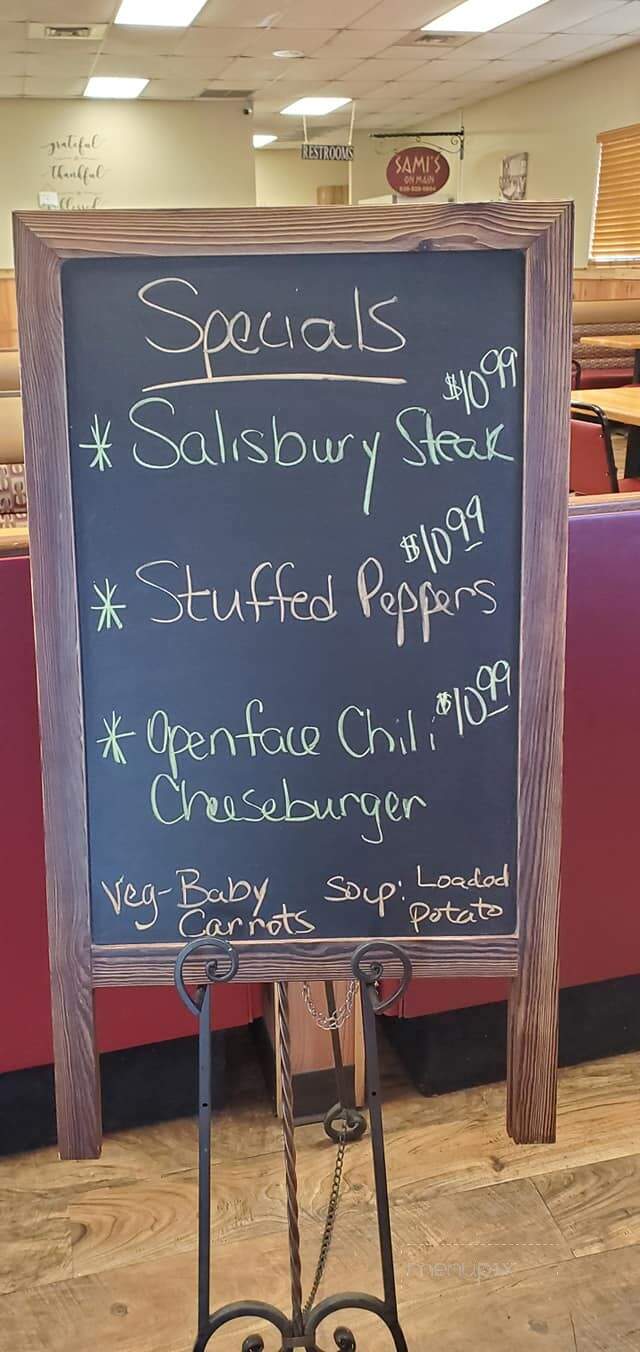 grateful
thankful
blessed
RESTROOMS
SAMI'S
ON MAIN
Specials
$10.99
* Salisbury Steak
$10.99
* Stuffed Peppers
* Openface Chili $10.99
Cheeseburger
Veg-Baby
Carrots
Soup: Loaded
Potato
menupix